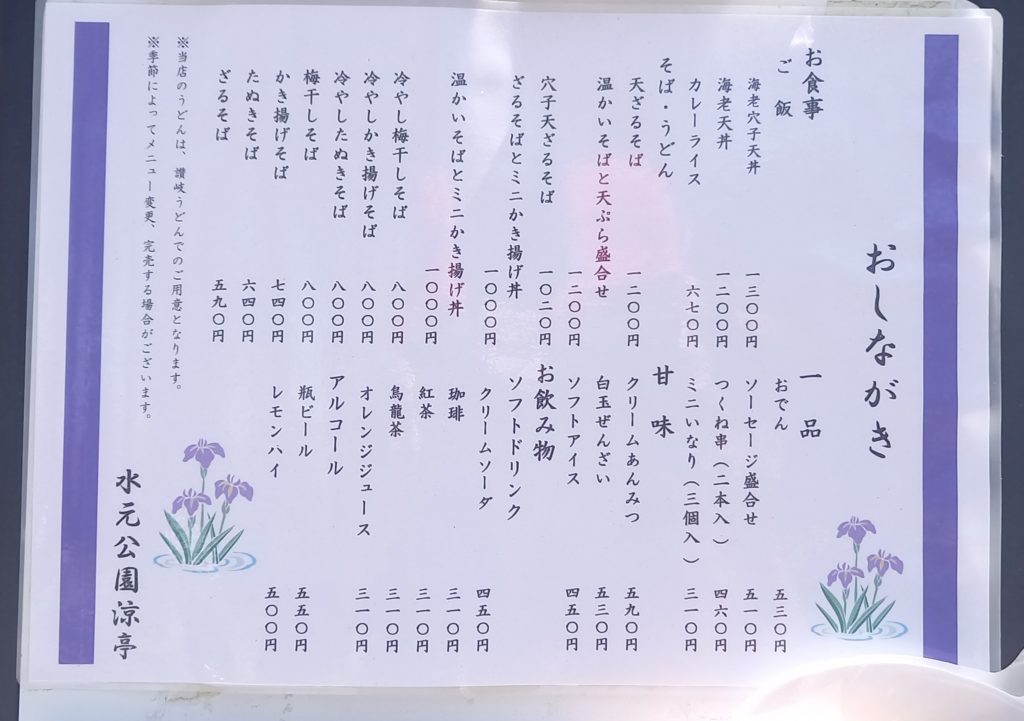 おしながき
お食事
ご飯
海老穴子天丼 一三〇〇円
海老天丼 一二〇〇円
カレーライス 六七〇円
そば・うどん
天ざるそば 一二〇〇円
温かいそばと天ぷら盛合せ
一二〇〇円
穴子天ざるそば 一〇二〇円
ざるそばとミニかき揚げ丼
一〇〇〇円
温かいそばとミニかき揚げ丼
一〇〇〇円
冷やし梅干しそば 八〇〇円
冷やしかき揚げそば 八〇〇円
冷やしたぬきそば 八〇〇円
梅干しそば 八〇〇円
かき揚げそば 七四〇円
たぬきそば 六四〇円
ざるそば 五九〇円
一品
おでん 五三〇円
ソーセージ盛合せ 五一〇円
つくね串(二本入) 四六〇円
ミニいなり(三個入) 三一〇円
甘味
クリームあんみつ 五九〇円
白玉ぜんざい 五三〇円
ソフトアイス 四五〇円
お飲み物
ソフトドリンク
クリームソーダ 四五〇円
珈琲 三一〇円
紅茶 三一〇円
烏龍茶 三一〇円
オレンジジュース 三一〇円
アルコール
瓶ビール 五五〇円
レモンハイ 五〇〇円
※当店のうどんは、讃岐うどんでのご用意となります。
※季節によってメニュー変更、完売する場合がございます。
水元公園涼亭